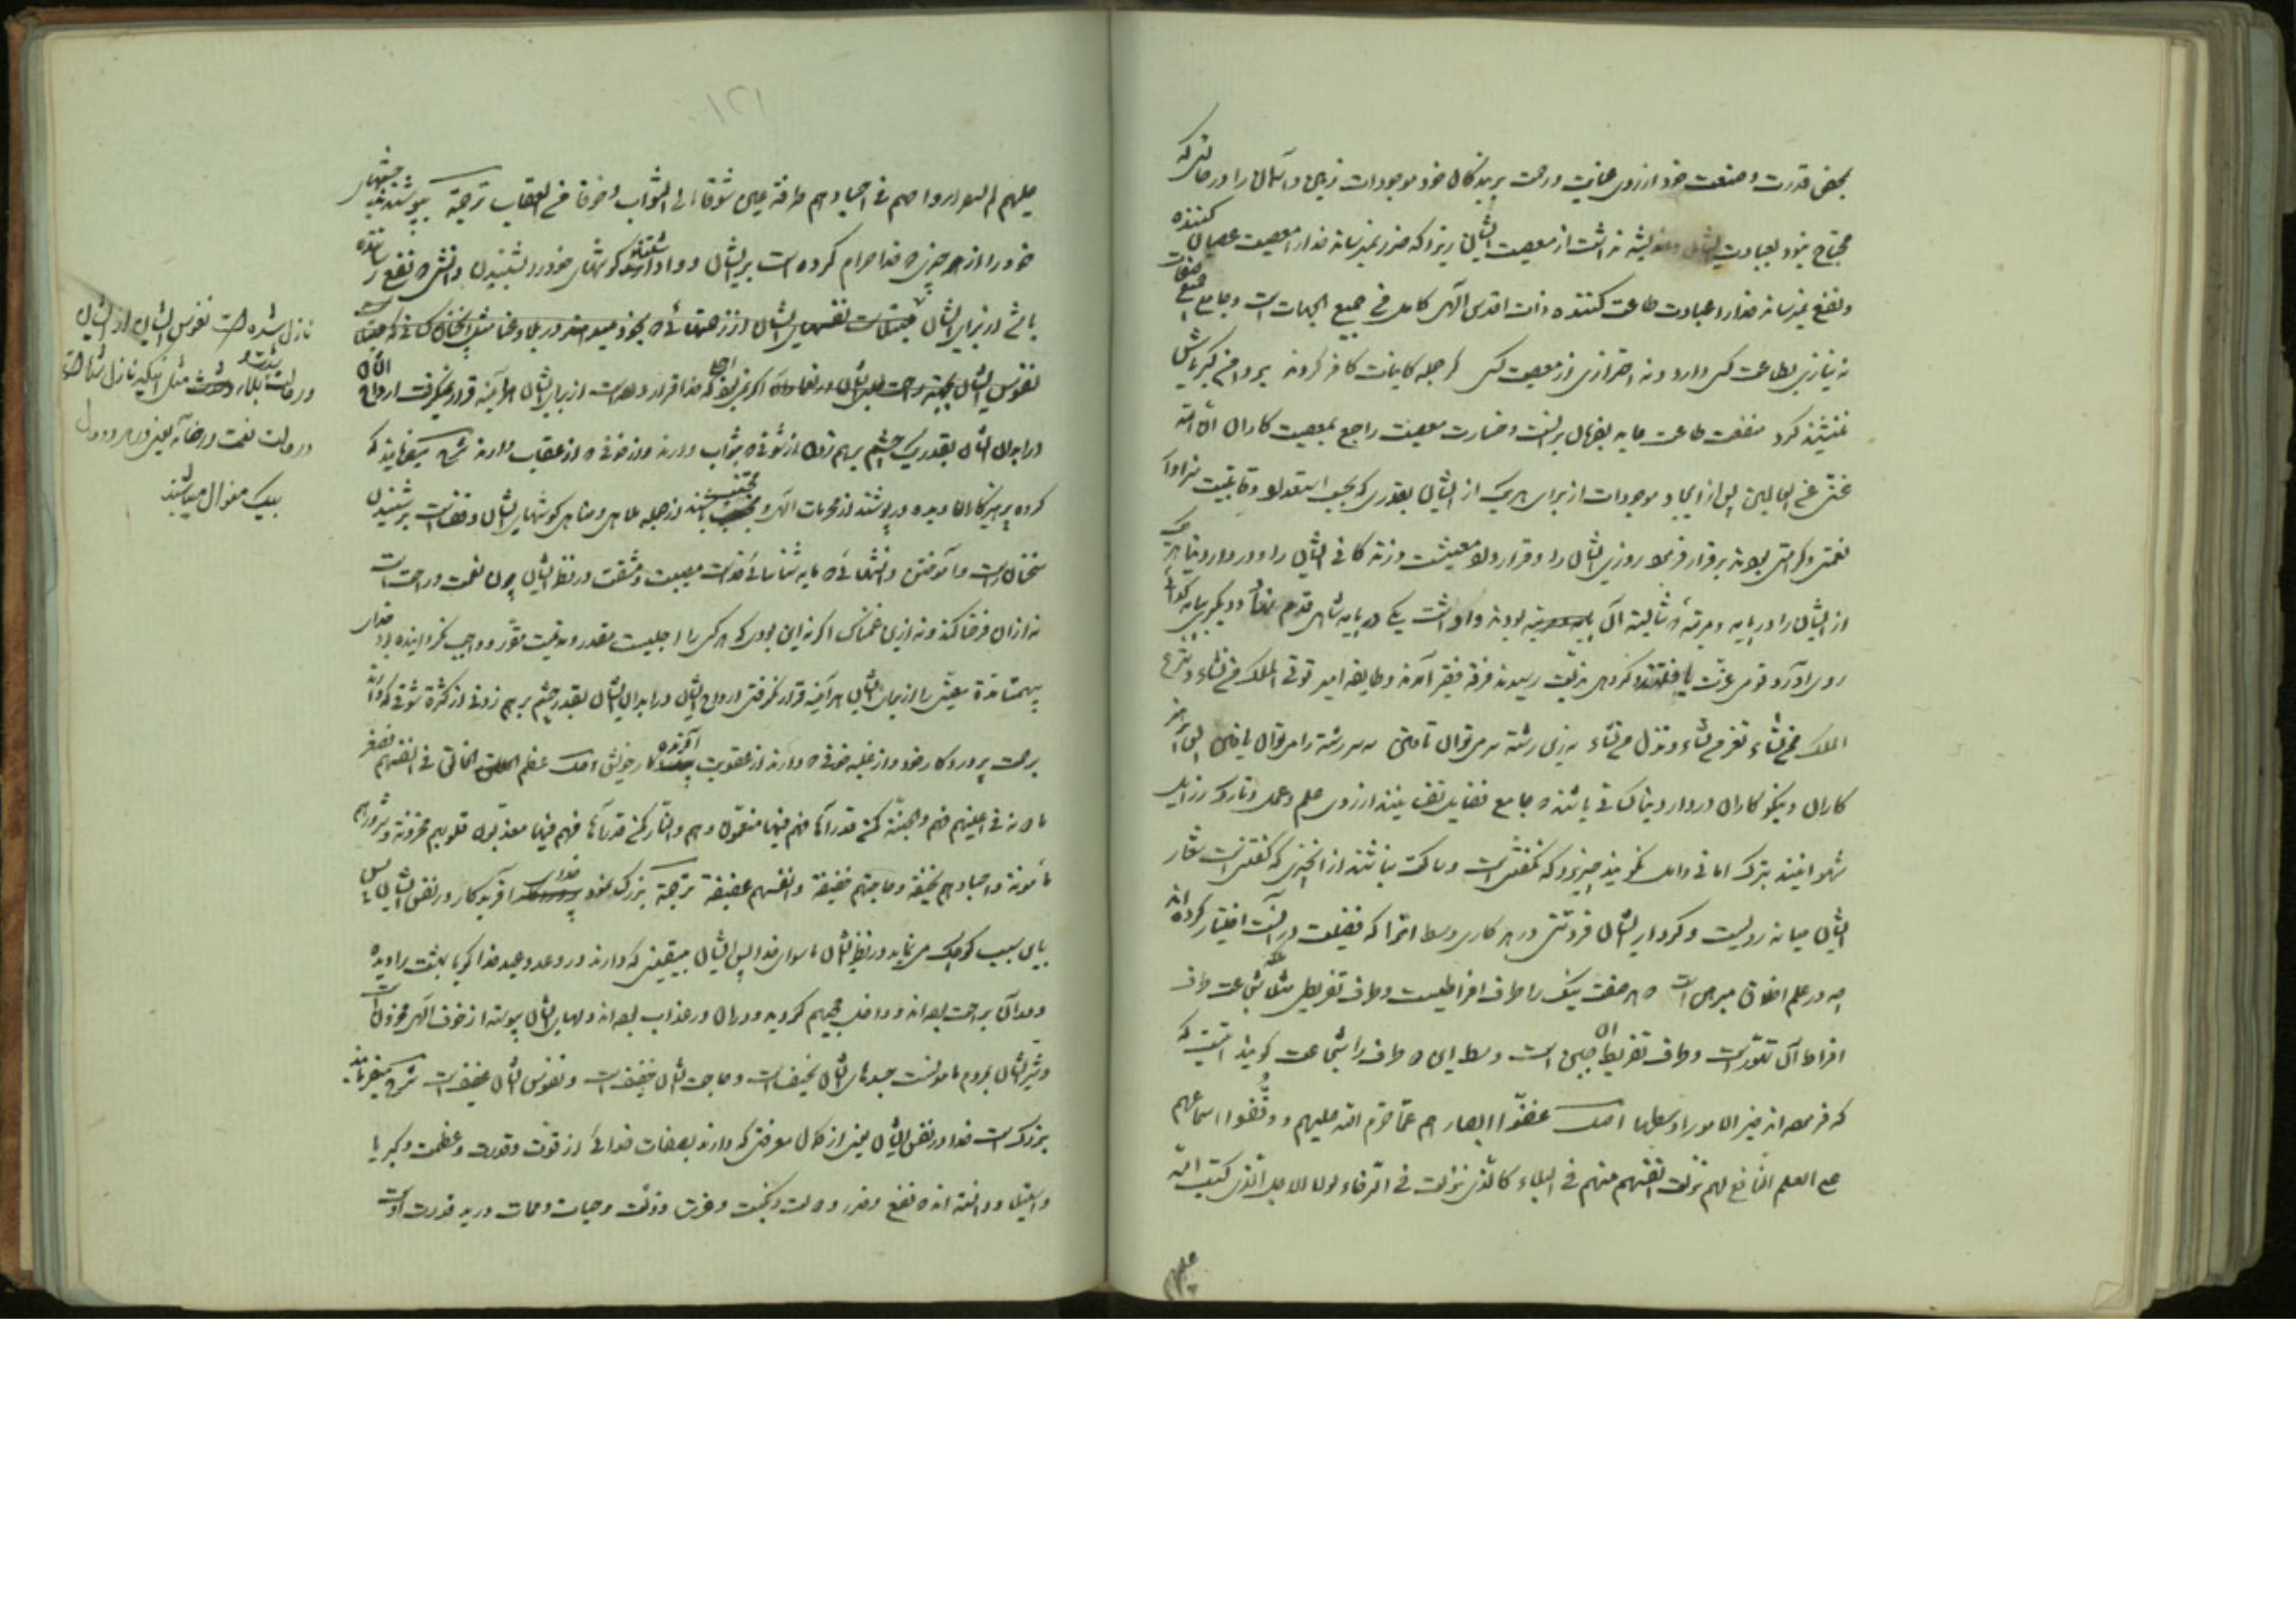 بمحض قدرت و صنعت خود از روی عنایت و رحمت بر بندگان خود موجودات زمین و آسمان را در حالتی که
محتاج نبود بعبادت ایشان و اندیشه نداشت از معصیت ایشان زیرا که ضرر نمیرساند خدا را معصیت عصیان کننده
و نفع نمیرساند خدا را عبادت طاعت کننده ذات اقدس الهی کامل فی جمیع الجهات است و جامع جمیع صفات
نه نیازی بطاعت کسی دارد و نه احترازی از معصیت کسی گر جمله کاینات کافر گردند بر دامن کبریاش
ننشیند گرد منفعت طاعت عاید بفرمان بر است و خسارت معصیت راجع بمعصیت کاران ان الله
غنی عن العالمین پس از ایجاد موجودات از برای هر یک از ایشان بقدری که بحسب استعداد و قابلیت سزاوار
نعمتی و کرامتی بودند برقرار فرمود روزی ایشان را و قرار داد معیشت و زندگانی ایشان را و در دار دنیا هر یک
از ایشان را در پایه و مرتبه که شایسته آن بودند واداشت یکی در پایه شاهی قدم نهاد و دیگری بپایه گدائی
روی آورد قومی عزت یافتند گروهی بذلت رسیدند فرقه فقیر آمدند و طایفه امیر تؤتی الملک من تشاء و تنزع
الملک ممن تشاء و تعز من تشاء و تذل من تشاء
کاران و نیکوکاران در دار دنیا کسانی باشند که جامع فضایل نفسانیند از روی علم و عمل و تارک رذایل
شهوانیند بترک امانی و امل نگویند چیزی که نگفتنی است و ساکت نباشند از آنچیزی که گفتنی است شعار
ایشان میانه رویست و کردار ایشان فروتنی در هر کاری وسط آنرا که فضیلت در آنست اختیار کرده اند
چه در علم اخلاق مبرهن است که هر صفت نیک را طرف افراطیست و طرف تفریطی مثلا شجاعت طرف
افراط آن تهور است و طرف تفریط آن جبن است وسط این دو طرف را شجاعت گویند اینست که
که فرموده اند خیر الامور اوسطها اصل غضوا ابصارهم عما حرم الله علیهم و وقفوا اسماعهم
علی العلم النافع لهم نزلت انفسهم منهم فی البلاء کالذی نزلت فی الرخاء لولا الاجل الذی کتب الله
علیهم
۱۲۱
علیهم لم تستقر ارواحهم فی اجسادهم طرفة عین شوقا الی الثواب و خوفا من العقاب ترجمه بپوشیدند چشمهای
خود را از هر چیزی که خدا حرام کرده است بر ایشان و واداشتند گوشهای خود را بشنیدن دانشی که نفع رساننده
باشد از برای ایشان
نفوس ایشان
در ابدان ایشان بقدر یک چشم بر هم زدن از شوقی که بثواب دارند و از خوفی که از عقاب دارند شرح میفرمایند که
کرده پرهیزکاران دیده در پوشند از محرمات الهی و مجتنب باشند از جمله ملاهی و مناهی گوشهای ایشان وقفست بر شنیدن
سخنان راست و آموختن دانشهائی که مایه شناسائی خداست مصیبت و مشقت در نظر ایشان چون نعمت و راحت است
نه از آن فرحناکند و نه از این غمناک اگر نه این بودی که هر کسی را اجلیست مقدر و مدتیست مقرر و واجب نگردانیده بود خدای
بیهمتا مدة معینی را از برای ایشان هرآینه قرار نگرفتی ارواح ایشان در ابدان ایشان بقدر چشم بر هم زدنی از کثرة شوقی که دارند
برحمت پروردگار خود و از غلبه خوفی که دارند از عقوبت آفریدگار خویش اصل عظم الخالق فی انفسهم فصغر
ما دونه فی اعینهم فهم والجنة کمن قد رآها فهم فیها منعمون وهم والنار کمن قد رآها فهم فیها معذبون قلوبهم محزونة و شرورهم
مأمونة و اجسادهم نحیفة و حاجاتهم خفیفة و انفسهم عفیفة ترجمه بزرگ نمود خدای آفریدگار در نفس ایشان پس
باین سبب کوچک می نماید در نظر ایشان ماسوای خدا پس ایشان بیقینی که دارند در وعد و وعید خدا گویا بهشت را دیده
و در آن براحت بوده اند و داخل جهنم گردیده و در آن در عذاب بوده اند دلهای ایشان پیوسته از خوف الهی محزونست
و شر ایشان بمردم مأمونست جسدهای ایشان نحیف است و حاجت ایشان خفیف است و نفوس ایشان عفیف است شرح میفرمایند
بزرگ است خدا در نفس ایشان یعنی از کمال معرفتی که دارند بصفات خدائی از قوت و قدرت و عظمت و کبریا
و استیلا و دانسته اند که نفع و ضرر و دولت و نکبت و عزت و ذلت و حیات و ممات در ید قدرت اوست
نازل شده است نفوس ایشان از ایشان
در حالت بلا و شدت مثل آنکه نازل شده است
در حالت نعمت و رخا یعنی در هر دو حال
بیک منوال میباشند